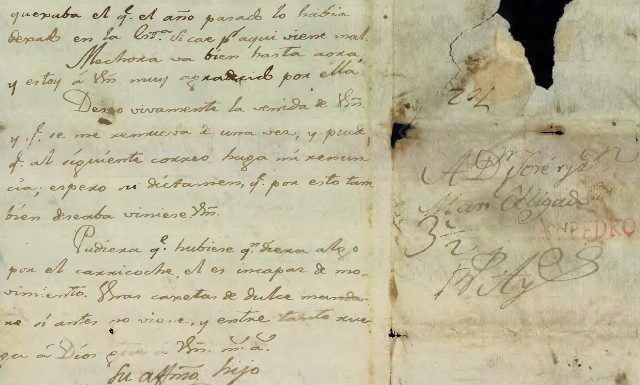 quexaba el q.e el año pasado lo habia
dexado en la
aqui viene mal.
Melchora va bien hasta aora,
y estoy á Vm. muy agradecido por ella.
Deseo vivamente la venida de Vm.
y q.e se me renueva de una vez, y
q.e al siguiente correo haga mi renun-
cia; espero su dictamen, q.e por esto tam
bien deseaba viniese Vm.
Pudiera q.e hubiese q.n diera algo
por el carricoche, él es incapaz de mo-
vimiento. Unas caxetas de dulce manda-
re si antes no viene, y entre tanto rue-
ga á Dios gue á Vm. m.s a.s
Su affmo. hijo
A D.n José
3½
NPEDRO